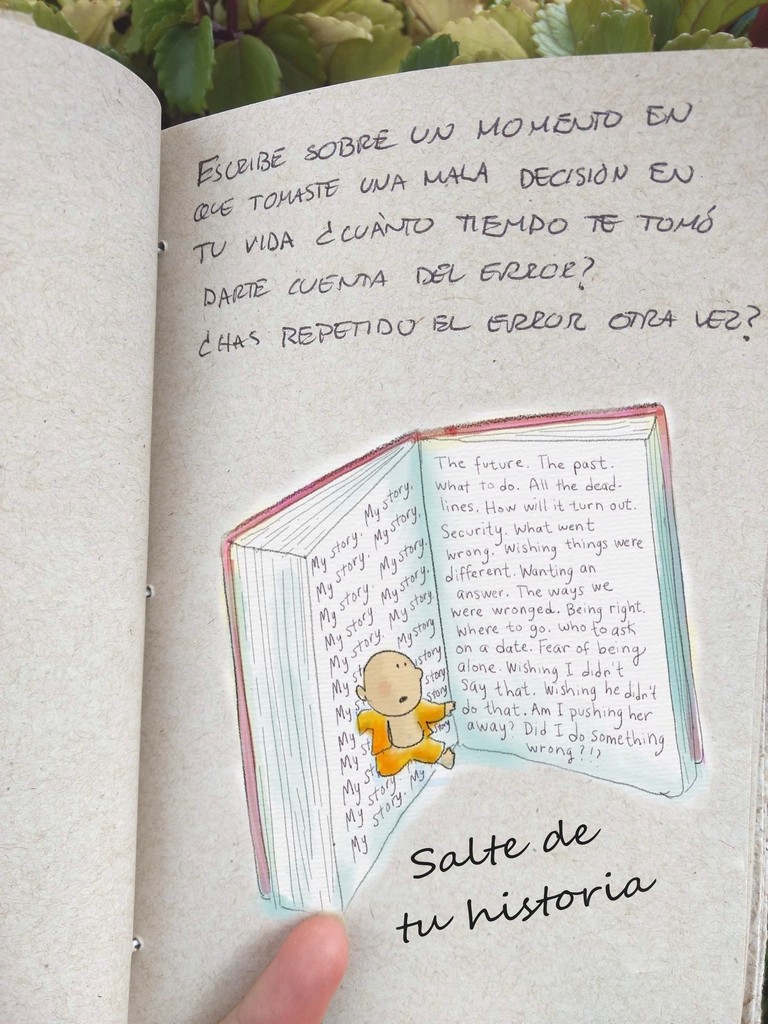 ESCRIBE SOBRE UN MOMENTO EN
QUE TOMASTE UNA MALA DECISIÓN EN
TU VIDA ¿CUÀNTO TIEMPO TE TOMÓ
DARTE CUENTA DEL ERROR?
¿HAS REPETIDO EL ERROR OTRA VEZ?
My story. My story.
My story. My story.
My story. My story.
My story. My story.
My story. My story
My story
My story
My story
My
My
My st
My story. My
My story.
My
The future. The past.
What to do. All the dead-
lines. How will it turn out.
Security. What went
wrong. Wishing things were
different. Wanting an
answer. The ways we
were wronged. Being right.
Where to go. Who to ask
on a date. Fear of being
alone. Wishing I didn't
say that. Wishing he didn't
do that. Am I pushing her
away? Did I do something
wrong?!?
Salte de
tu historia